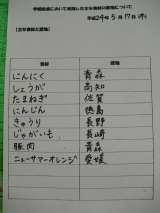 学校給食において使用した主な食材の産地について
平成29年5月17日(水)
【主な食材と産地】
食材 産地
にんにく 青森
しょうが 高知
たまねぎ 佐賀
にんじん 徳島
きゅうり 長野
じゃがいも 長崎
豚肉 青森
ニューサマーオレンジ 愛媛